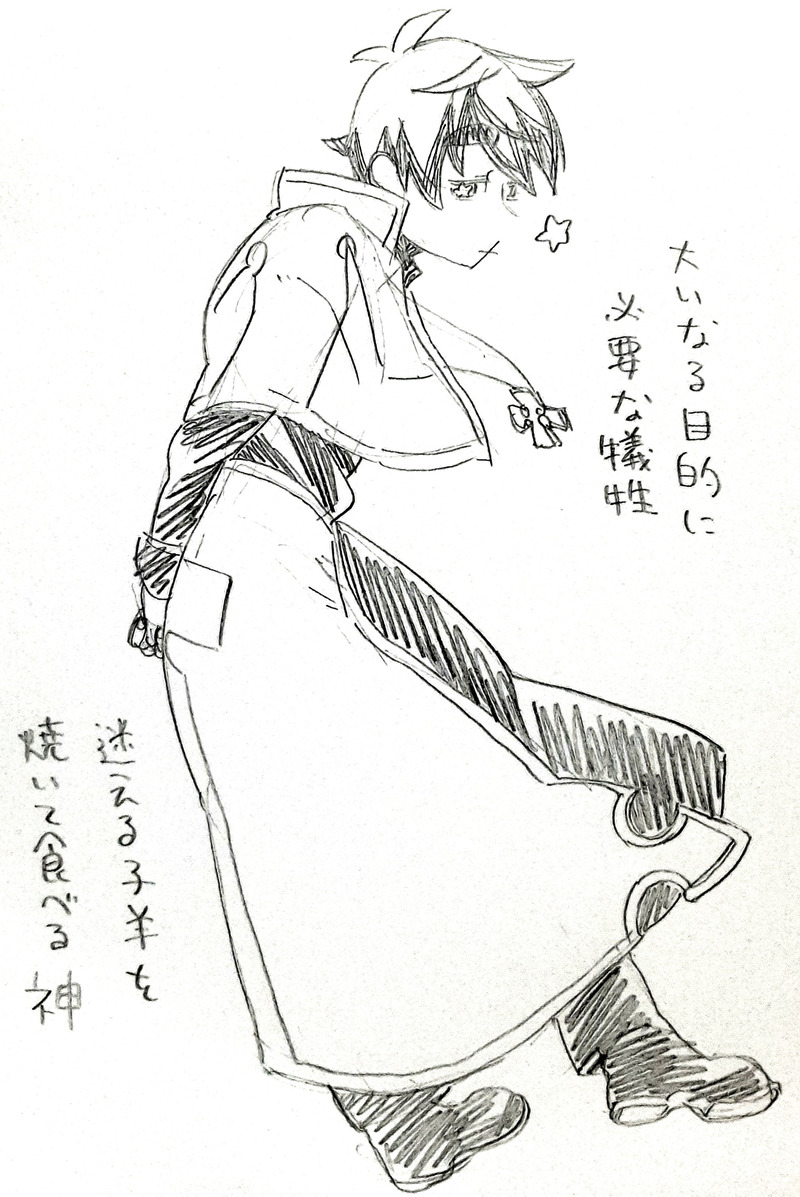 大いなる目的に
必要な犠牲
迷える子羊を
焼いて食べる神